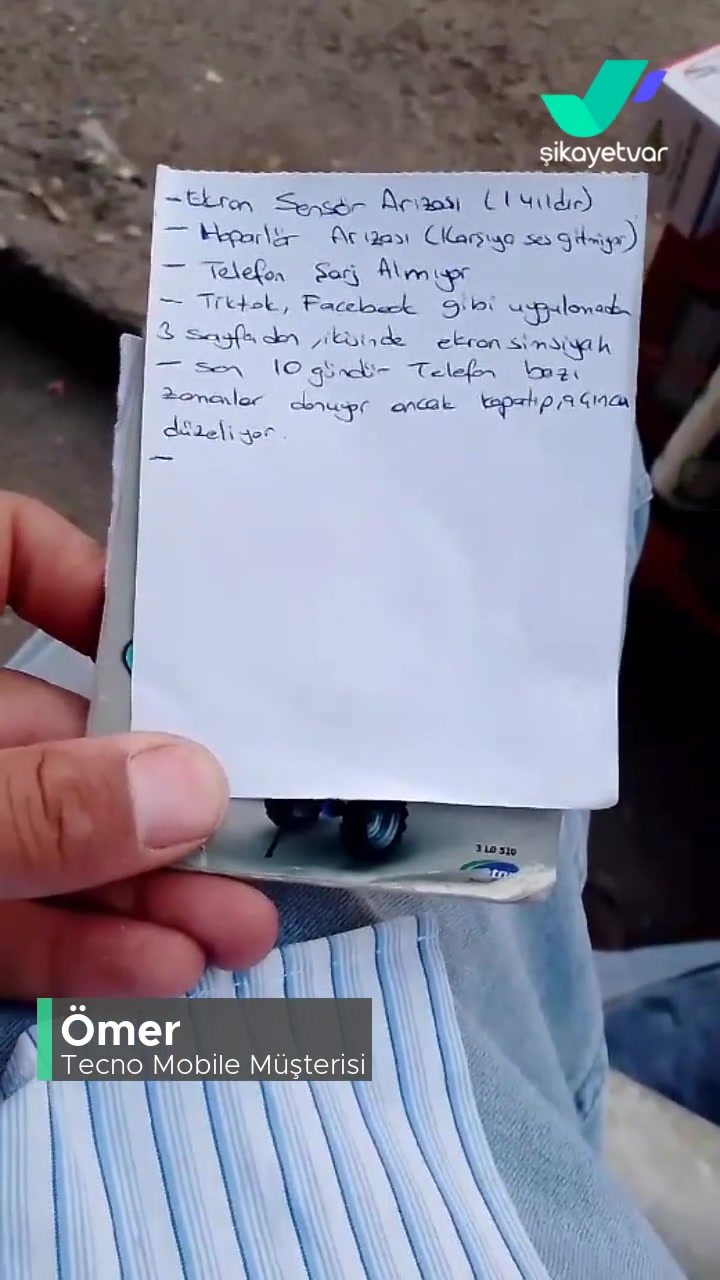 şikayetvar
- Ekran Sensör Arızası (1 yıldır)
- Hoparlör Arızası (Karşıya ses gitmiyor)
- Telefon Şarj Almıyor
- Tiktok, Facebook gibi uygulamada
3 sayfadan, ikisinde ekran simsiyah
- son 10 gündür Telefon bazı
zamanlar donuyor ancak kapatıp, açınca
düzeliyor.
-
3 LD 510
Ömer
Tecno Mobile Müşterisi